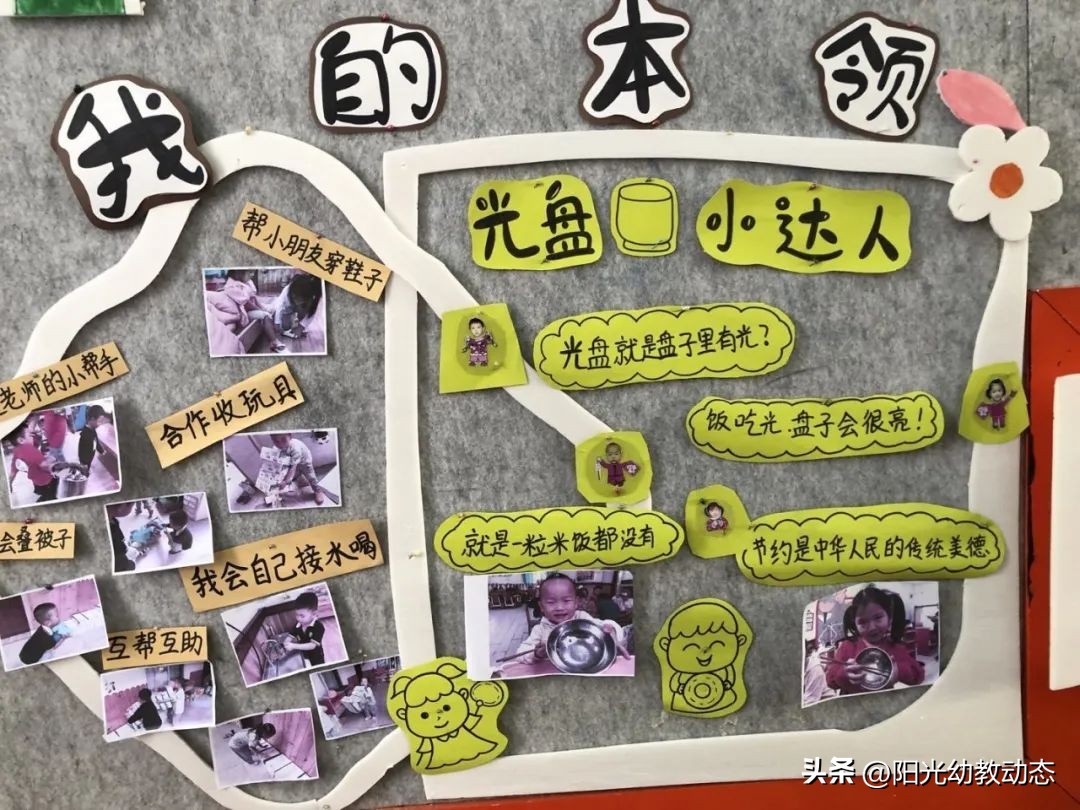 我的本领
光盘小达人
帮小朋友穿鞋子
老师的小帮手
合作收玩具
会叠被子
我会自己接水喝
互帮互助
光盘就是盘子里有光?
饭吃光.盘子会很亮!
就是一粒米饭都没有
节约是中华人民的传统美德
头条 @阳光幼教动态